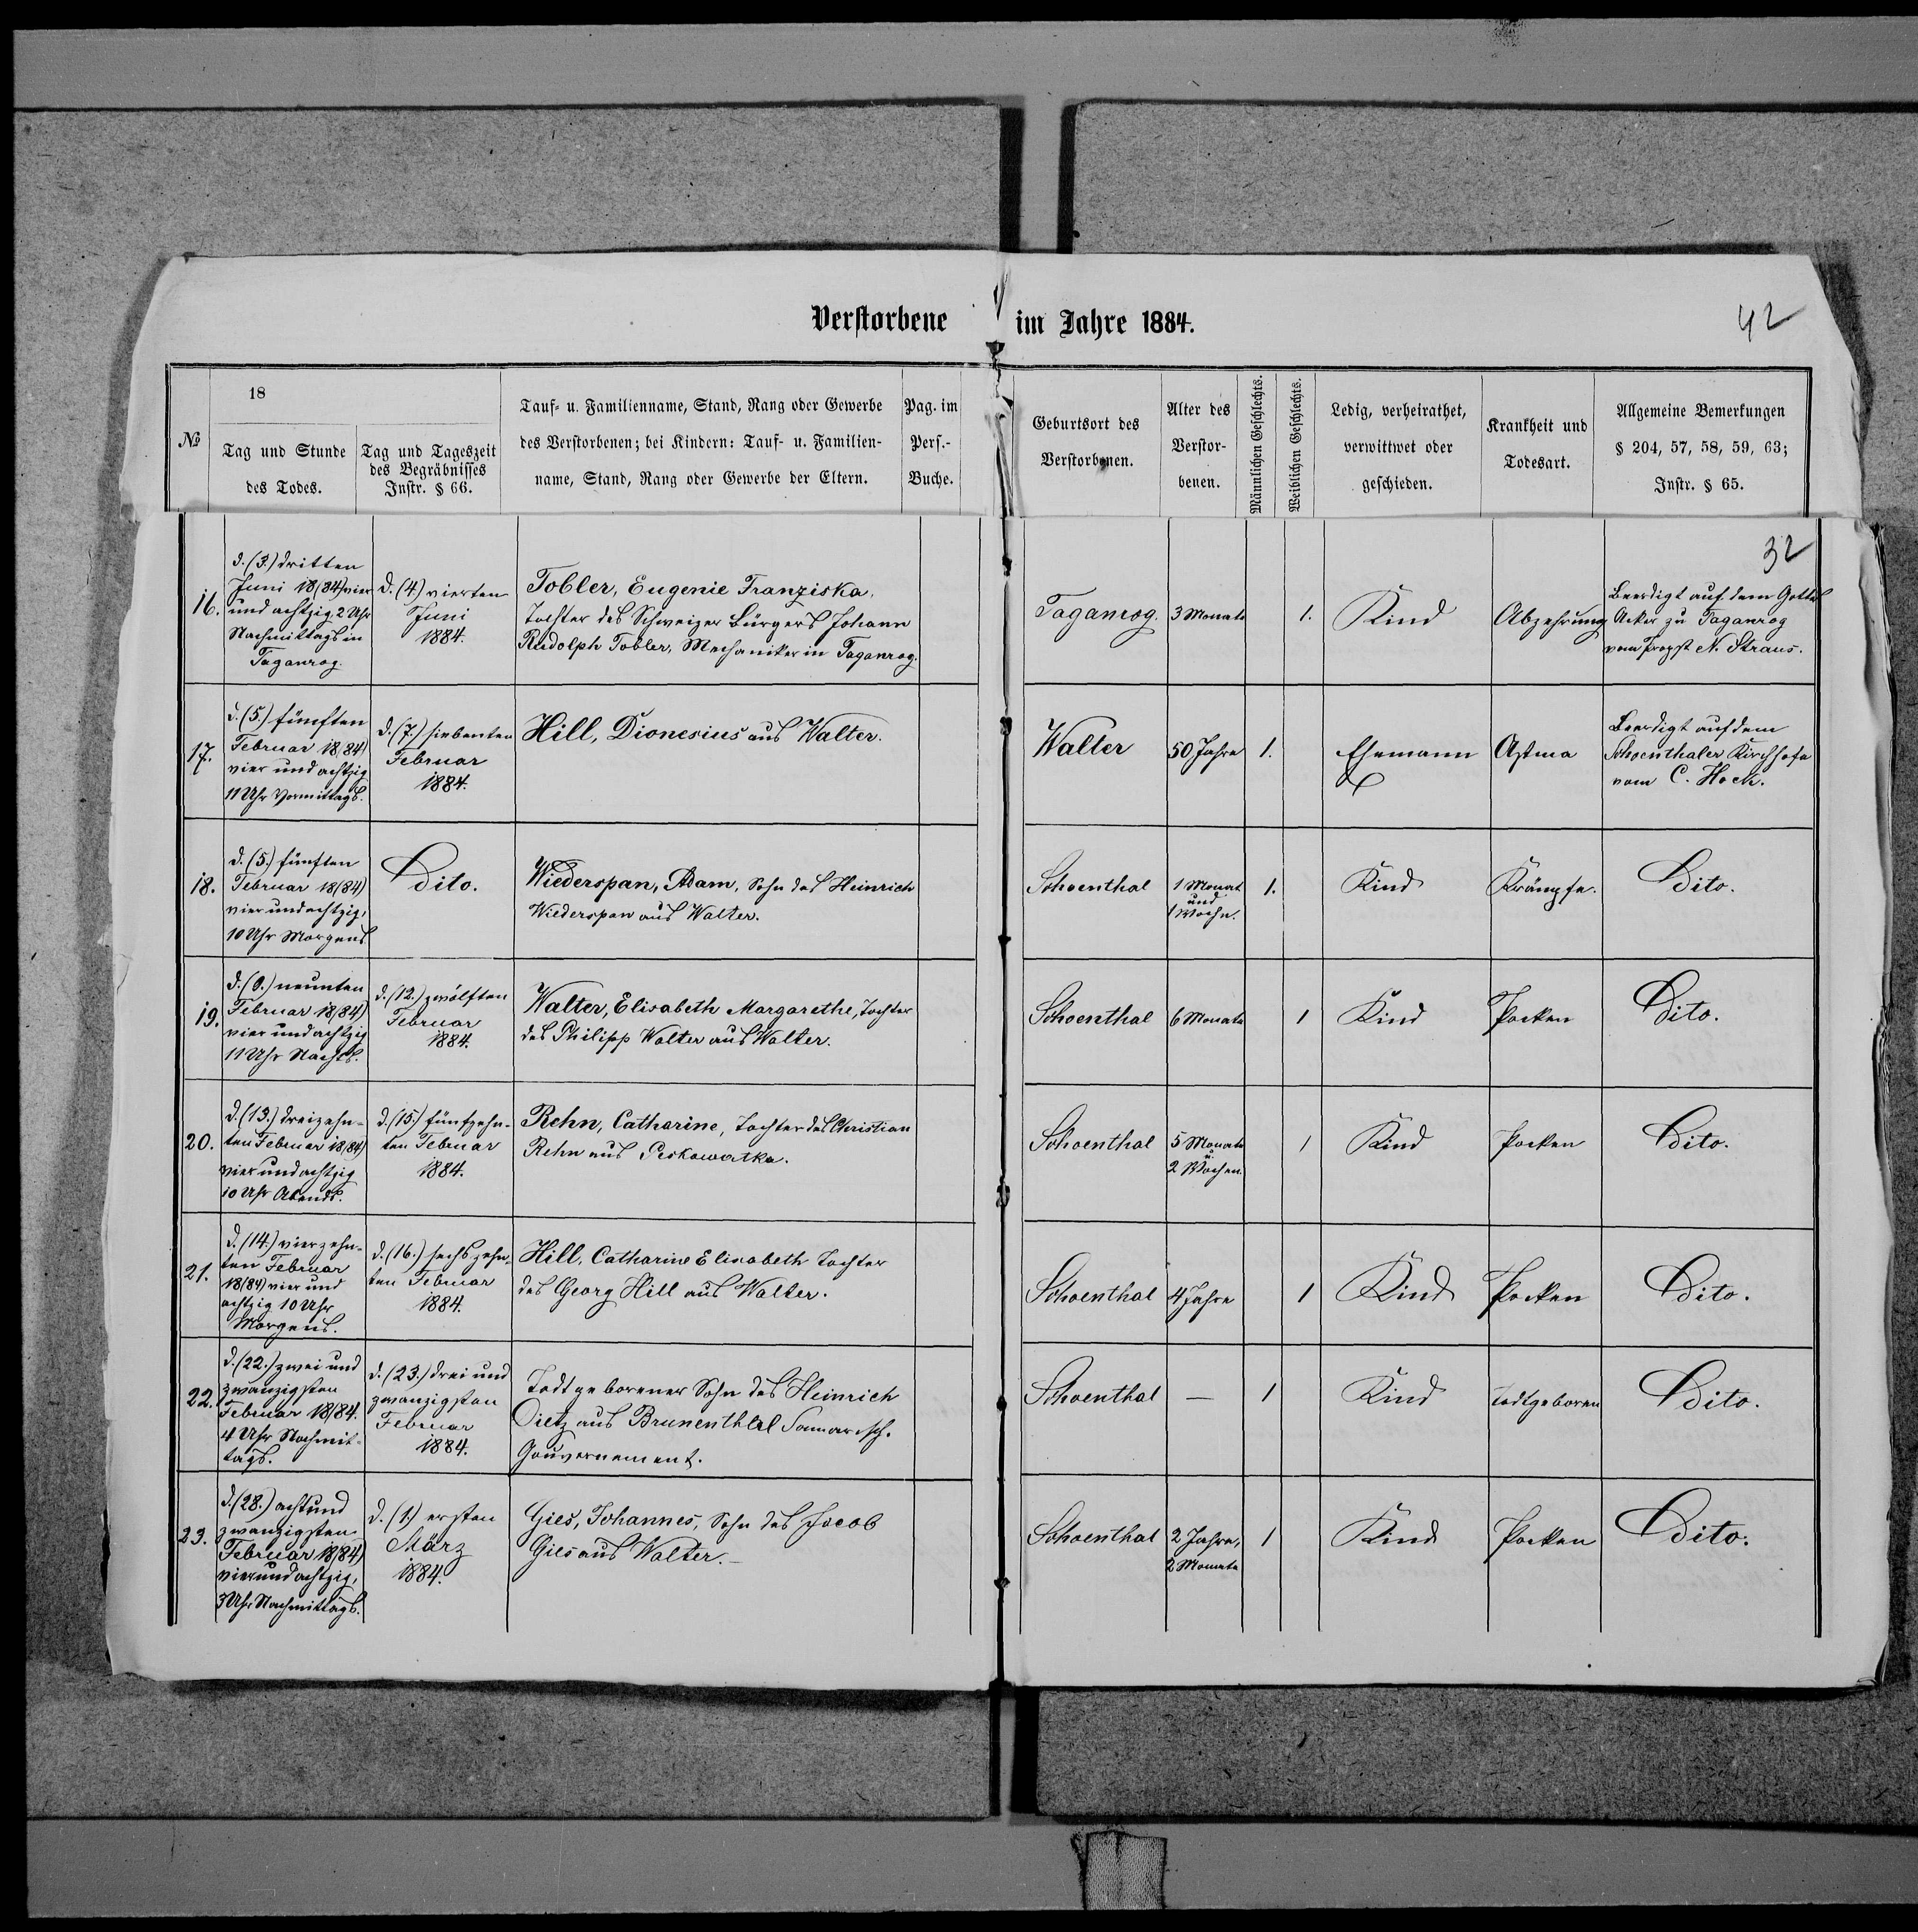 Verstorbene im Jahre 1884.
42
№
18
Tag und Stunde
des Todes.
Tag und Tageszeit
des Begräbnisses
Instr. § 66.
Tauf- u. Familienname, Stand, Rang oder Gewerbe
des Verstorbenen; bei Kindern: Tauf- u. Familien-
name, Stand, Rang oder Gewerbe der Eltern.
Pag. im
Pers.-
Buche.
Geburtsort des
Verstorbenen.
Alter des
Verstor-
benen.
Männlichen Geschlechts.
Weiblichen Geschlechts.
Ledig, verheirathet,
verwittwet oder
geschieden.
Krankheit und
Todesart.
Allgemeine Bemerkungen
§ 204, 57, 58, 59, 63;
Instr. § 65.
32
16.
d. (3.) dritten
Juni 18(84) vier
und achtzig 2 Uhr
Nachmittags in
Taganrog.
d. (4) vierten
Juni
1884.
Tobler, Eugenie Franziska,
Tochter des Schweizer Bürgers Johann
Rudolph Tobler, Mechaniker in Taganrog.
Taganrog.
3 Monate
1.
Kind
Abzehrung
Beerdigt auf dem Gottes
Acker zu Taganrog
vom Propst N. Straus.
17.
d. (5.) fünften
Februar 18(84)
vier und achtzig
11 Uhr Vormittags.
d. (7.) siebenten
Februar
1884.
Hill, Dionesius aus Walter.
Walter
50 Jahre
1.
Ehemann
Astma
Beerdigt auf dem
Schoenthaler Kirchhofe
vom C. Hock.
18.
d. (5.) fünften
Februar 18(84)
vier und achtzig,
10 Uhr Morgens
Dito.
Wiederspan, Adam, Sohn des Heinrich
Wiederspan aus Walter.
Schoenthal
1 Monat
und
1 Woche.
1.
Kind
Krämpfe.
Dito.
19.
d. (9.) neunten
Februar 18(84)
vier und achtzig
11 Uhr Nachts.
d. (12.) zwölften
Februar
1884.
Walter, Elisabeth Margarethe, Tochter
des Philipp Walter aus Walter.
Schoenthal
6 Monate
1
Kind
Pocken
Dito.
20.
d. (13.) dreizehn-
ten Februar 18(84)
vier und achtzig
10 Uhr Abends.
d. (15.) fünfzehn-
ten Februar
1884.
Rehn, Catharine, Tochter des Christian
Rehn aus Peskowatka.
Schoenthal
5 Monate
u.
2 Wochen.
1
Kind
Pocken
Dito.
21.
d. (14.) vierzehn-
ten Februar
18(84) vier und
achtzig 10 Uhr
Morgens.
d. (16.) sechszehn-
ten Februar
1884.
Hill, Catharine Elisabeth Tochter
des Georg Hill aus Walter.
Schoenthal
4 Jahre
1
Kind
Pocken
Dito.
22.
d. (22.) zwei und
zwanzigsten
Februar 18/84.
4 Uhr Nachmit-
tags.
d. (23.) drei und
zwanzigsten
Februar
1884.
Todtgeborener Sohn des Heinrich
Dietz aus Brunenthal Samarisch.
Gouvernement.
Schoenthal
—
1
Kind
todtgeboren
Dito.
23.
d. (28.) acht und
zwanzigsten
Februar 18(84)
vier und achtzig,
3 Uhr Nachmittags.
d. (1.) ersten
März
1884.
Gies, Johannes, Sohn des Jacob
Gies aus Walter.—
Schoenthal
2 Jahre,
2 Monate
1
Kind
Pocken
Dito.